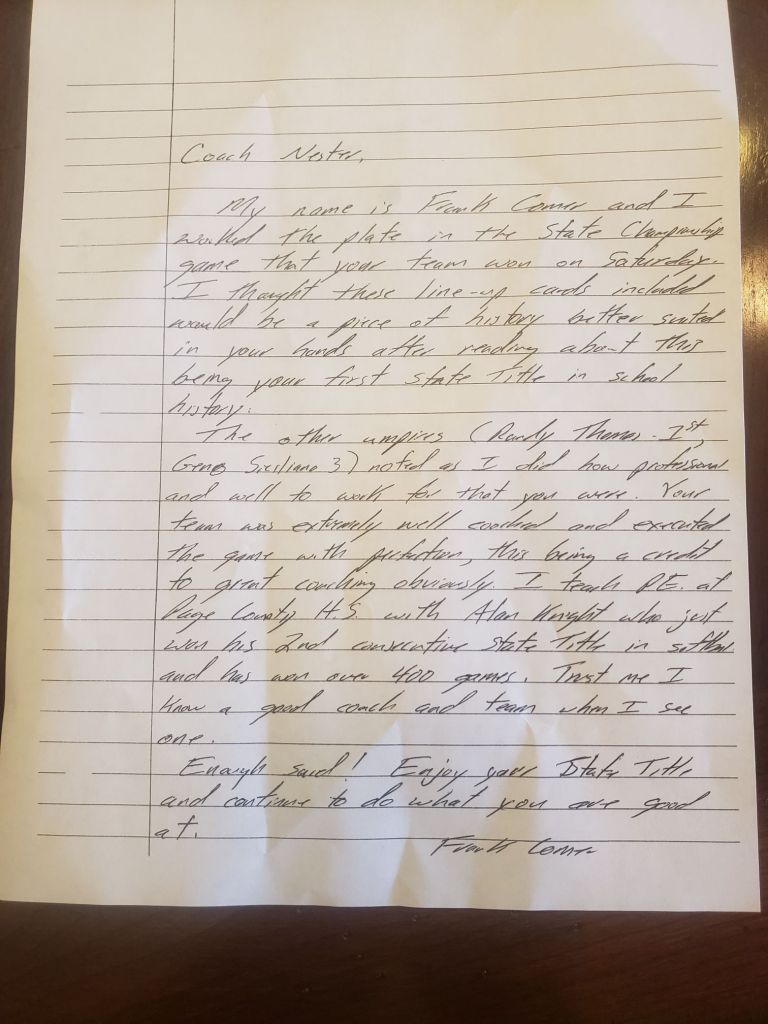 Coach Nester,
My name is Frank Comer and I
worked the plate in the State Championship
game that your team won on Saturday.
I thought these line-up cards included
would be a piece of history better suited
in your hands after reading about this
being your first state Title in school
history.
The other umpires (Randy Thomas - 1st,
Geno Siciliano 3) noted as I did how professional
and well to work for that you were. Your
team was extremely well coached and executed
the game with perfection, this being a credit
to great coaching obviously. I teach P.E. at
Page County H.S. with Alan Knight who just
won his 2nd consecutive State Title in softball
and has won over 400 games. Trust me I
know a good coach and team when I see
one.
Enough said! Enjoy your State Title
and continue to do what you are good
at.
Frank Comer